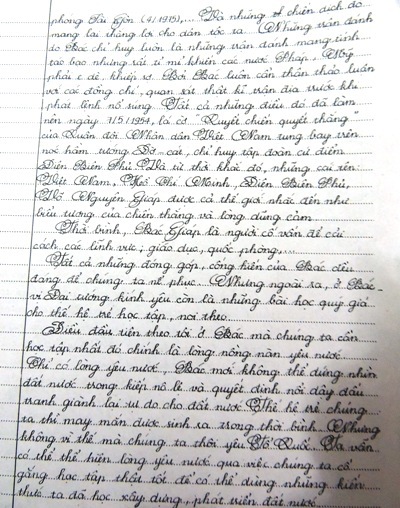 phóng Sài Gòn (4/1975),... Và những chiến dịch đó
mang lại thắng lợi cho dân tộc ta. Những trận đánh
do Bác chỉ huy luôn là những trận đánh mang tính
táo bạo nhưng rất tỉ mỉ khiến các nước Pháp, Mỹ
phải e dè, khiếp sợ. Bởi Bác luôn cẩn thận thảo luận
với các đồng chí, quan sát thật kĩ trận địa trước khi
phát lệnh nổ súng. Tất cả những điều đó đã làm
nên ngày 7/5/1954, lá cờ "Quyết chiến quyết thắng"
của Quân đội Nhân dân Việt Nam tung bay trên
nóc hầm tướng Đờ-cát, chỉ huy tập đoàn cứ điểm
Điện Biên Phủ. Và từ thời khắc đó, những cái tên:
Việt Nam, Hồ Chí Minh, Điện Biên Phủ,
Võ Nguyên Giáp được cả thế giới nhắc đến như
biểu tượng của chiến thắng và lòng dũng cảm.
Thời bình, Bác Giáp là người cố vấn để cải
cách các lĩnh vực, giáo dục, quốc phòng,...
Tất cả những đóng góp, cống hiến của Bác đều
đáng để chúng ta nể phục. Nhưng ngoài ra, ở Bác
vị Đại tướng kính yêu còn là những bài học quý giá
cho thế hệ trẻ học tập, noi theo.
Điều đầu tiên theo tôi ở Bác mà chúng ta cần
học tập nhất đó chính là lòng nồng nàn yêu nước.
Chỉ có lòng yêu nước, Bác mới không thể đứng nhìn
đất nước trong kiếp nô lệ và quyết định nổi dậy đấu
tranh giành lại tự do cho đất nước. Thế hệ trẻ chúng
ta thì may mắn được sinh ra trong thời bình. Nhưng
không vì thế mà chúng ta thôi yêu Tổ Quốc. Ta vẫn
có thể thể hiện lòng yêu nước qua việc chúng ta cố
gắng học tập thật tốt để có thể dùng những kiến
thức ta đã học xây dựng, phát triển đất nước.